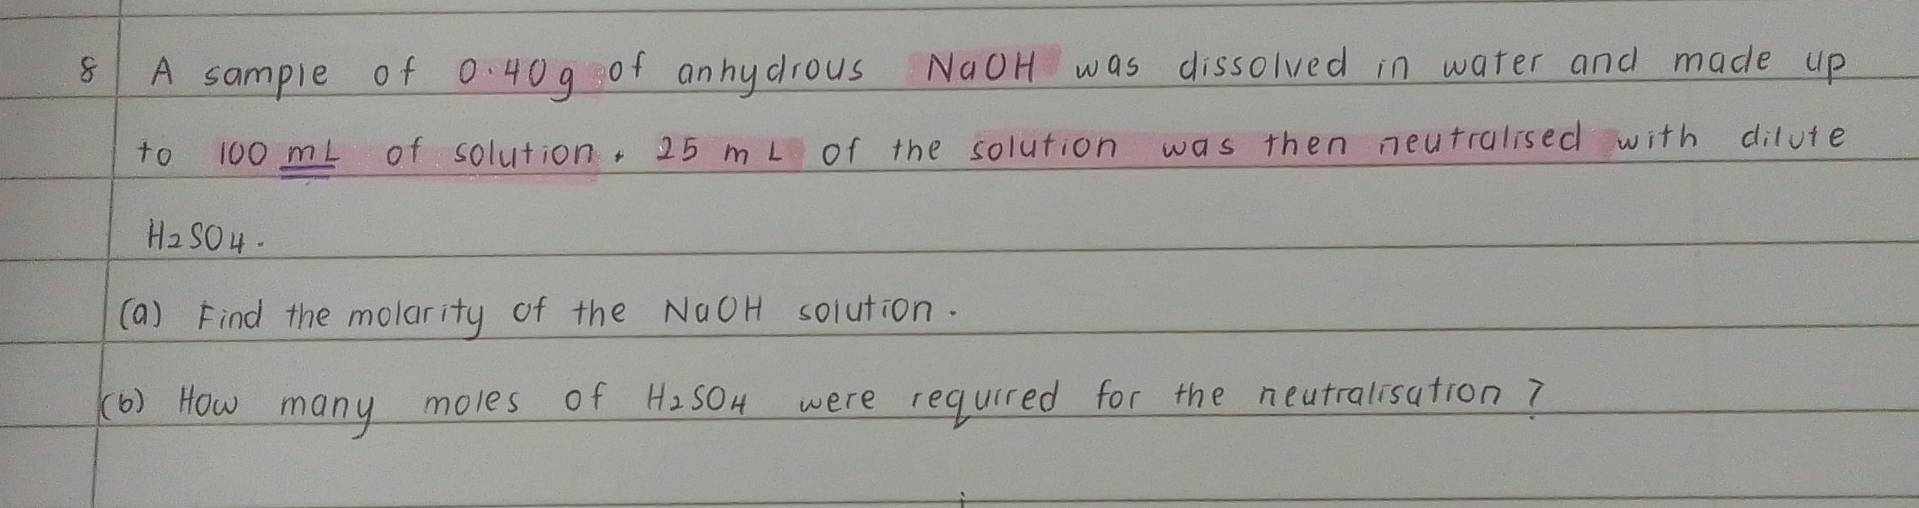 8 A sample of 0.40g of anhydrous NaOH was dissolved in water and made up
to 100 mL of solution. 25 mL of the solution was then neutralised with dilute
H2SO4.
(a) Find the molarity of the NaOH solution.
(b) How many moles of H2SO4 were required for the neutralisation?